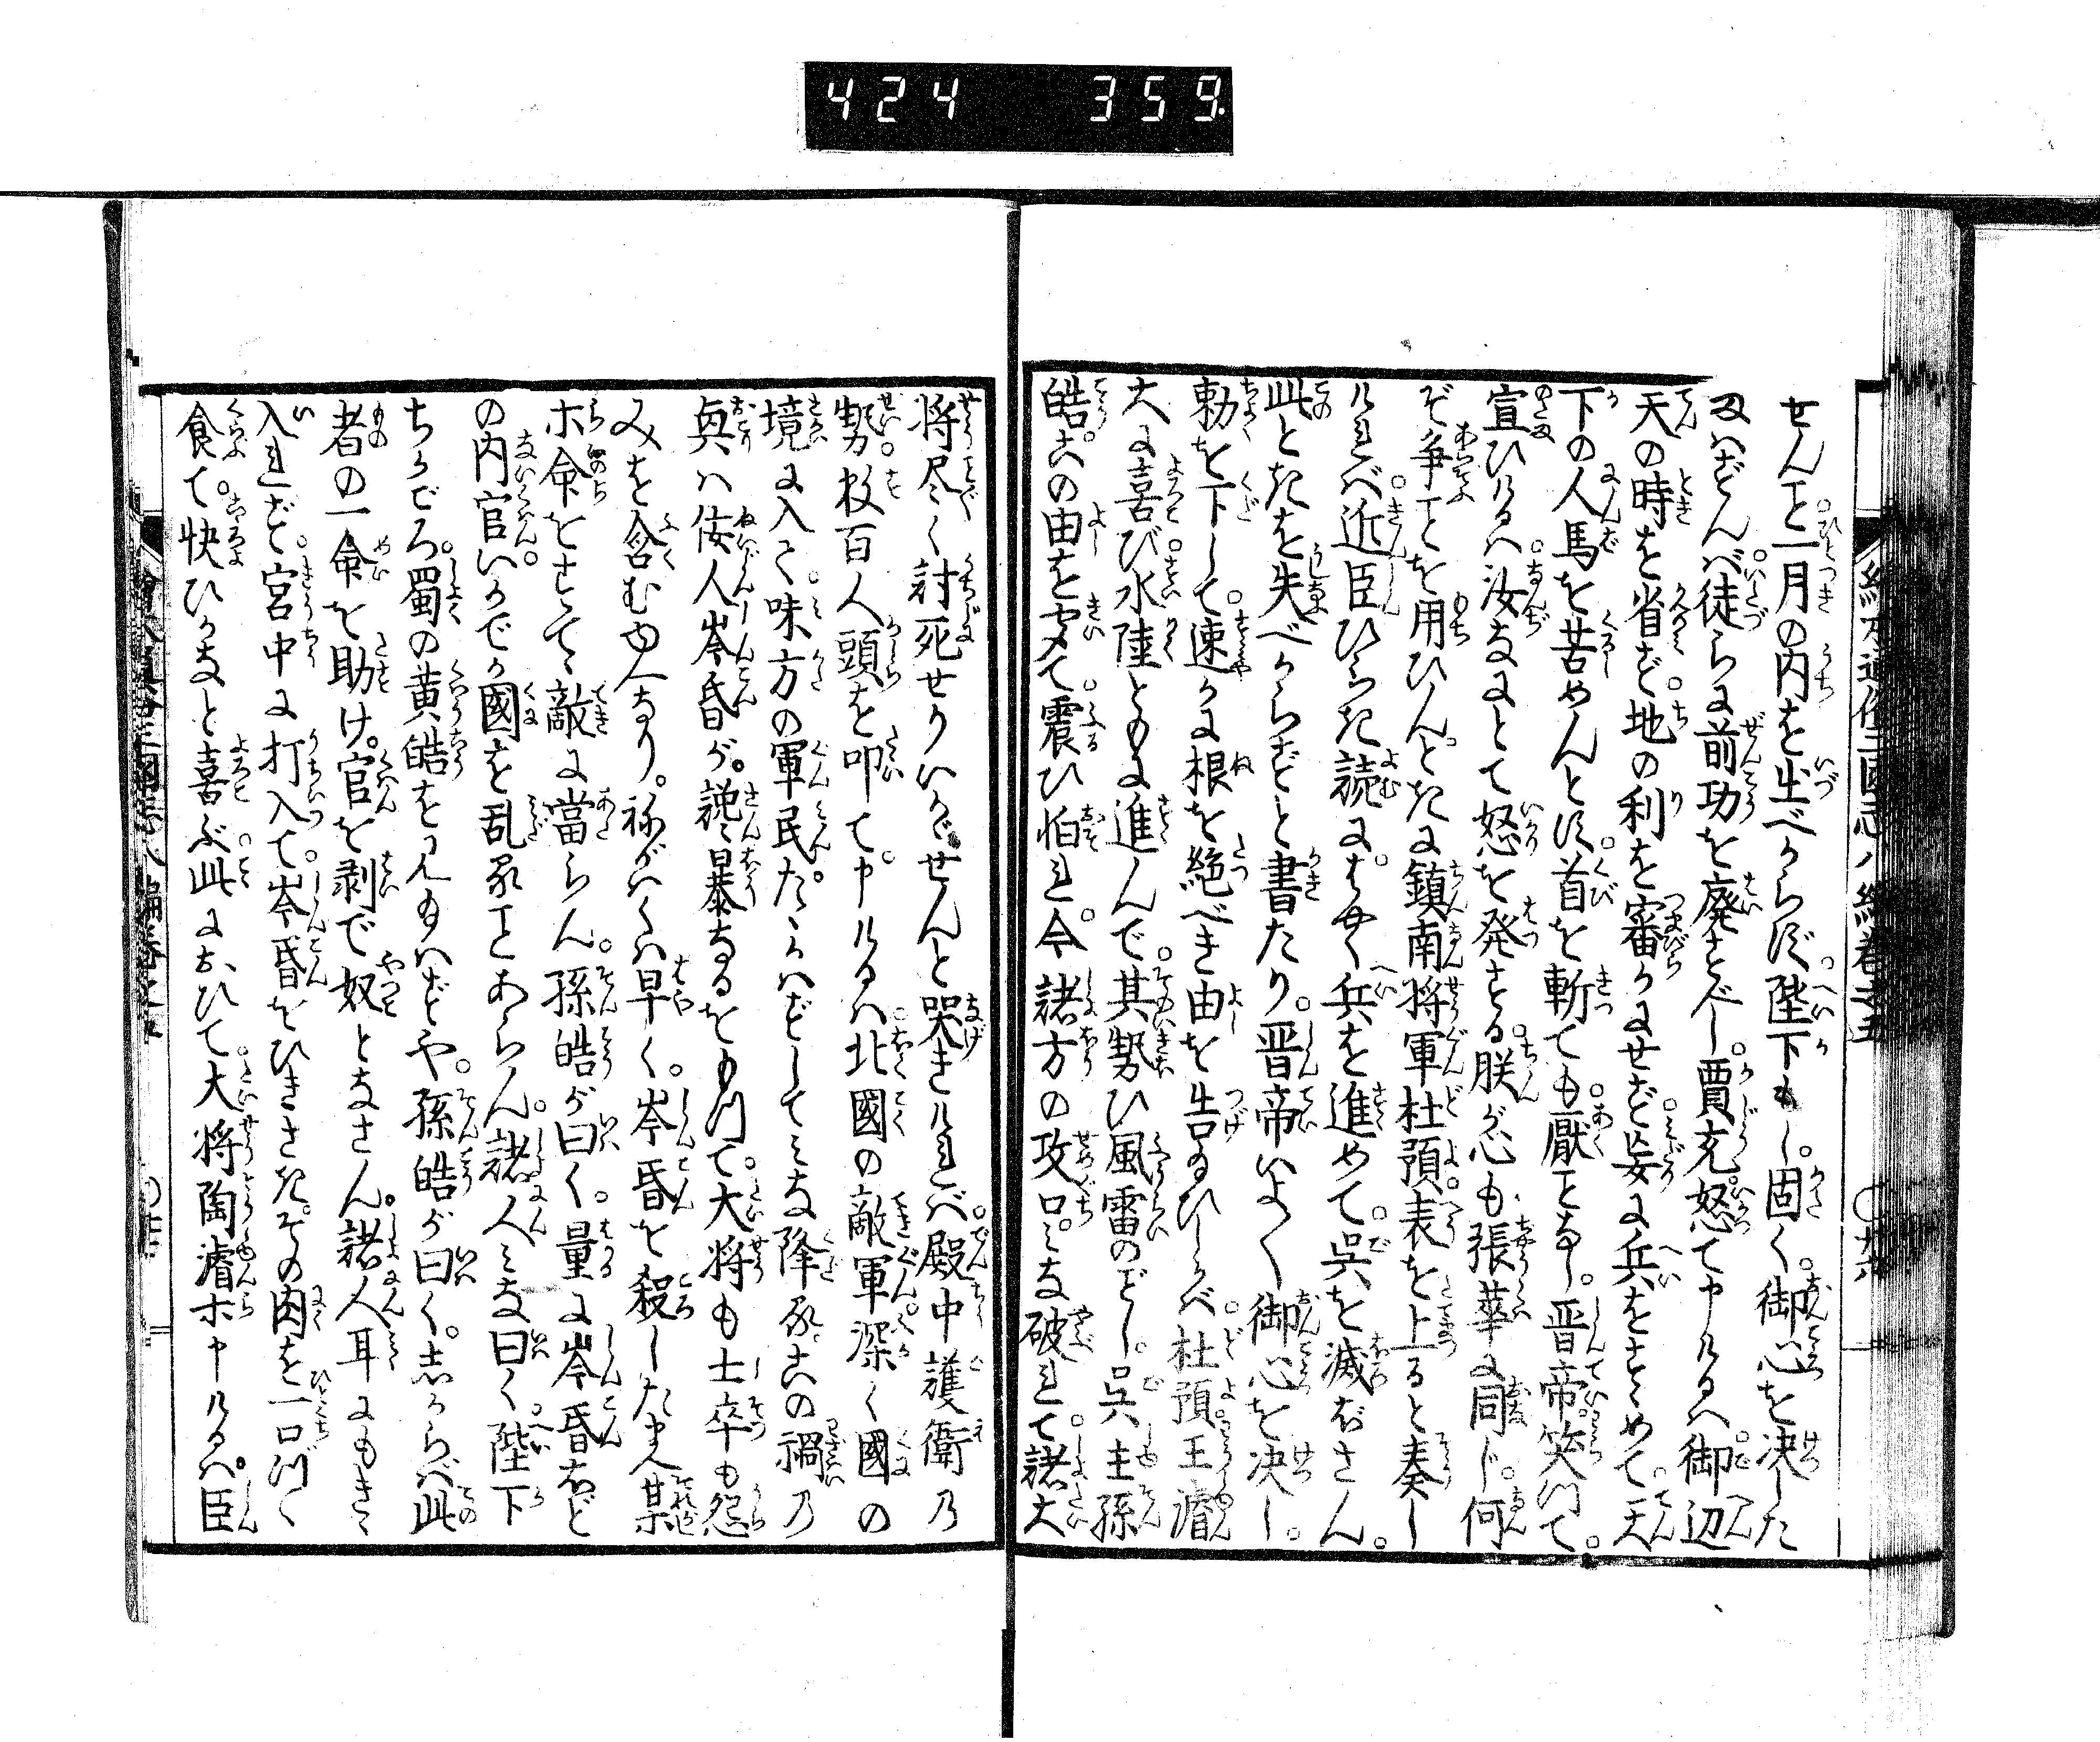 424 359.
せんこと一月の内を出べからず。陛下もし。固く。御心を决した
まはざんバ。徒らに前功を廃すべし。賈充。怒て申けるハ。御辺
天の時を省ず。地の利を審かにせず。妄に兵をすゝめて。天
下の人馬を苦めんとす。首を斬ても。厭ことなし。晋帝。笑つて。
宣ひけるハ。汝なにとて怒を発する。朕が心も。張華に同じ。何
ぞ争ことを用ひんとき。に鎮南将軍杜預。表を上ると奏し
けれバ。近臣ひらき読に。はやく兵を進めて。呉を滅ぼさん。
此ときを失べからずと書たり。晋帝いよ〱御心を决し。
勅を下して。速かに根を絶べき由を告給ひしかバ。杜預。王濬
大に喜び。水陸ともに進んで。其勢ひ風雷のごとし。呉主孫
皓。この由を聞て。震ひ怕れ。今諸方の攻口。ミな破れて。諸大
将尽く討死せりいかゞせんと哭きけれバ。殿中護衛乃
勢。数百人頭を叩て。申けるハ。北國の敵軍。深く國の
境に入て。味方の軍民。たゝかはずしてミな降る。この禍乃
奥ハ佞人岑昏が。讒暴なるをもつて。大将も士卒も怨
みを含むゆへなり。祢がはくハ早く。岑昏を殺したまへ某
等命をすてゝ敵に當らん。孫皓が曰く。量に岑昏など
の内官。いかでか國を乱ることあらん。諸人ミな曰く。陛下
ちかごろ。蜀の黄皓を見給はずや。孫皓が曰く。志からバ此
者の一命を助け。官を剥で奴となさん。諸人耳にもきゝ
入れず。宮中に打入て。岑昏をひきさき。その肉を一口づゝ
食て。快ひかなと喜ぶ。此におひて。大将陶濬等申けるハ。臣